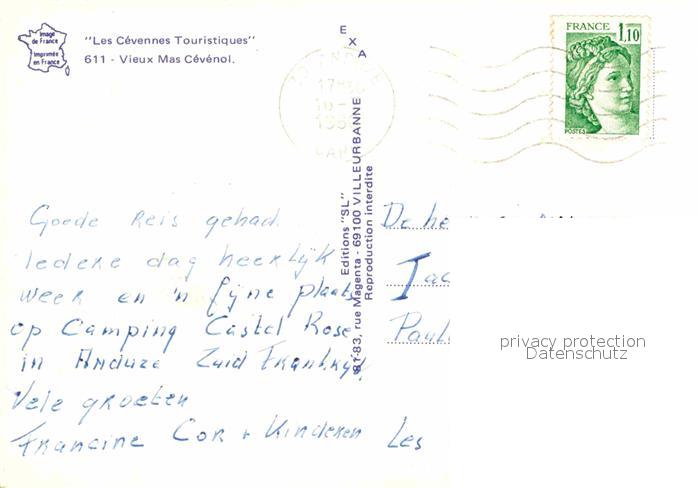 Image
de France
Imprimée
en France
"Les Cévennes Touristiques"
611 - Vieux Mas Cévénol.
EXA
30 ANDUZE
17H
16 -
GARD
FRANCE
1,10
POSTES
Goede reis gehad.
Iedere dag heerlijk
weer en 'n fijne plaats
op Camping Castel Rose
in Anduze Zuid Frankrijk
Vele groeten
Francine Cor + Kinderen
Editions "SL"
81-83, rue Magenta - 69100 VILLEURBANNE
Reproduction interdite
De he
Jac
Paul
Les
privacy protection
Datenschutz